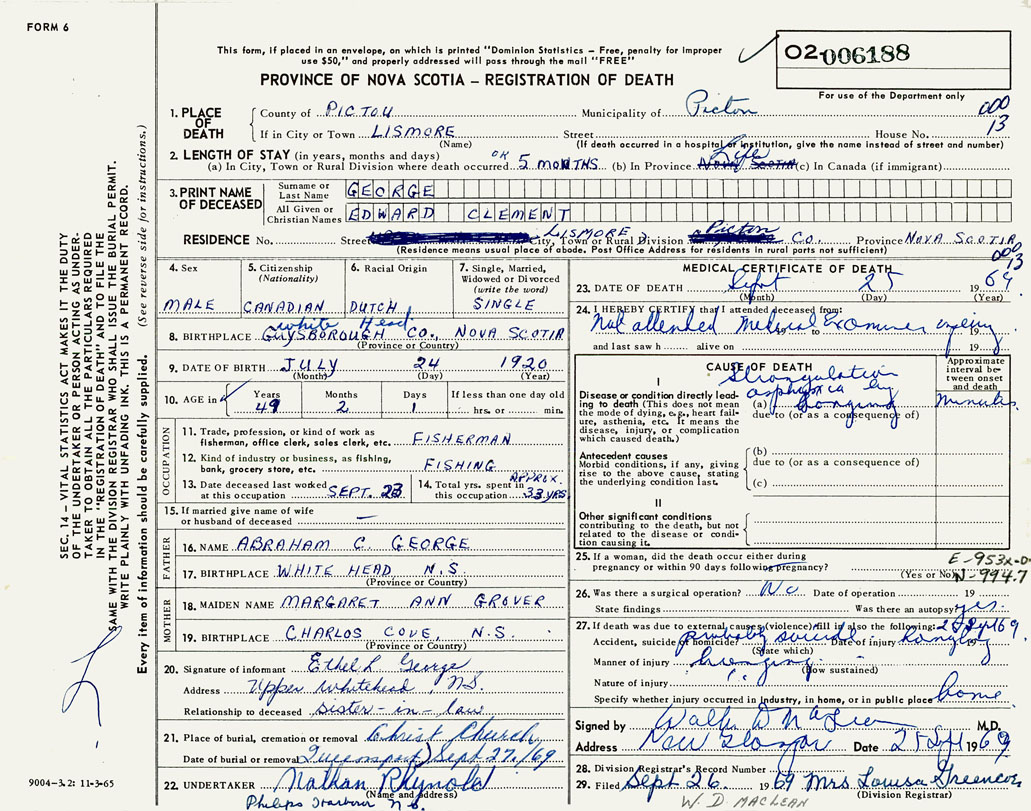 FORM 6
This form, if placed in an envelope, on which is printed "Dominion Statistics – Free, penalty for improper
use $50," and properly addressed will pass through the mail "FREE"
PROVINCE OF NOVA SCOTIA – REGISTRATION OF DEATH
O2 006188
For use of the Department only
1. PLACE OF DEATH
County of PICTOU Municipality of Pictou 000
If in City or Town LISMORE Street House No. 13
(Name) (If death occurred in a hospital or institution, give the name instead of street and number)
2. LENGTH OF STAY (in years, months and days) OR Life
(a) In City, Town or Rural Division where death occurred 5 MONTHS (b) In Province NOVA SCOTIA (c) In Canada (if immigrant)
3. PRINT NAME OF DECEASED
Surname or Last Name GEORGE
All Given or Christian Names EDWARD CLEMENT
RESIDENCE No. Street City, Town or Rural Division LISMORE Pictou CO. Province NOVA SCOTIA
(Residence means usual place of abode. Post Office Address for residents in rural parts not sufficient)
000 13
4. Sex MALE
5. Citizenship (Nationality) CANADIAN
6. Racial Origin DUTCH
7. Single, Married, Widowed or Divorced (write the word) SINGLE
White Head
8. BIRTHPLACE GUYSBOROUGH CO., NOVA SCOTIA
(Province or Country)
9. DATE OF BIRTH JULY 24 1920
(Month) (Day) (Year)
10. AGE in Years Months Days If less than one day old
49 2 1 hrs. or min.
OCCUPATION
11. Trade, profession, or kind of work as
fisherman, office clerk, sales clerk, etc. FISHERMAN
12. Kind of industry or business, as fishing,
bank, grocery store, etc. FISHING
13. Date deceased last worked
at this occupation SEPT. 23
14. Total yrs. spent in
this occupation APPROX. 33 YRS.
15. If married give name of wife
or husband of deceased —
FATHER
16. NAME ABRAHAM C. GEORGE
17. BIRTHPLACE WHITE HEAD N.S.
(Province or Country)
MOTHER
18. MAIDEN NAME MARGARET ANN GROVER
19. BIRTHPLACE CHARLOS COVE, N.S.
(Province or Country)
20. Signature of informant Ethel L George
Address Upper Whitehead, N.S.
Relationship to deceased sister-in-law
21. Place of burial, cremation or removal Christ Church
Date of burial or removal Sept 27/69
22. UNDERTAKER Nathan Rhynold
(Name and address)
Philips Harbour N.S.
MEDICAL CERTIFICATE OF DEATH
23. DATE OF DEATH Sept 25 1969
(Month) (Day) (Year)
24. I HEREBY CERTIFY that I attended deceased from:
Not attended Medical Examiner to 19
and last saw h alive on 19
CAUSE OF DEATH
Approximate interval between onset and death
I
Disease or condition directly leading to death (This does not mean the mode of dying, e.g., heart failure, asthenia, etc. It means the disease, injury, or complication which caused death.)
Strangulation
asphyxia by
(a) hanging minutes
due to (or as a consequence of)
Antecedent causes
Morbid conditions, if any, giving rise to the above cause, stating the underlying condition last.
(b)
due to (or as a consequence of)
(c)
II
Other significant conditions
contributing to the death, but not related to the disease or condition causing it.
25. If a woman, did the death occur either during
pregnancy or within 90 days following pregnancy? (Yes or No)
E-953x-D
N-994.7
26. Was there a surgical operation? No Date of operation 19
State findings Was there an autopsy? yes.
27. If death was due to external causes (violence) fill in also the following: 25 Sept 69.
Accident, suicide or homicide? probably suicide Date of injury hanging 19
(State which)
Manner of injury hanging (How sustained)
Nature of injury "
Specify whether injury occurred in industry, in home, or in public place home
Signed by M.D.
Address New Glasgow Date 25 Sept 1969
28. Division Registrar's Record Number
29. Filed Sept 26 1969 Mrs. Louisa
(Division Registrar)
W. D. MACLEAN
SEC. 14 – VITAL STATISTICS ACT MAKES IT THE DUTY
OF THE UNDERTAKER OR PERSON ACTING AS UNDER-
TAKER TO OBTAIN ALL THE PARTICULARS REQUIRED
IN THE "REGISTRATION OF DEATH" AND TO FILE THE
SAME WITH THE DIVISION REGISTRAR WHO SHALL ISSUE THE BURIAL PERMIT.
WRITE PLAINLY WITH UNFADING INK. THIS IS A PERMANENT RECORD.
Every item of information should be carefully supplied. (See reverse side for instructions.)
9004-3.2: 11-3-65